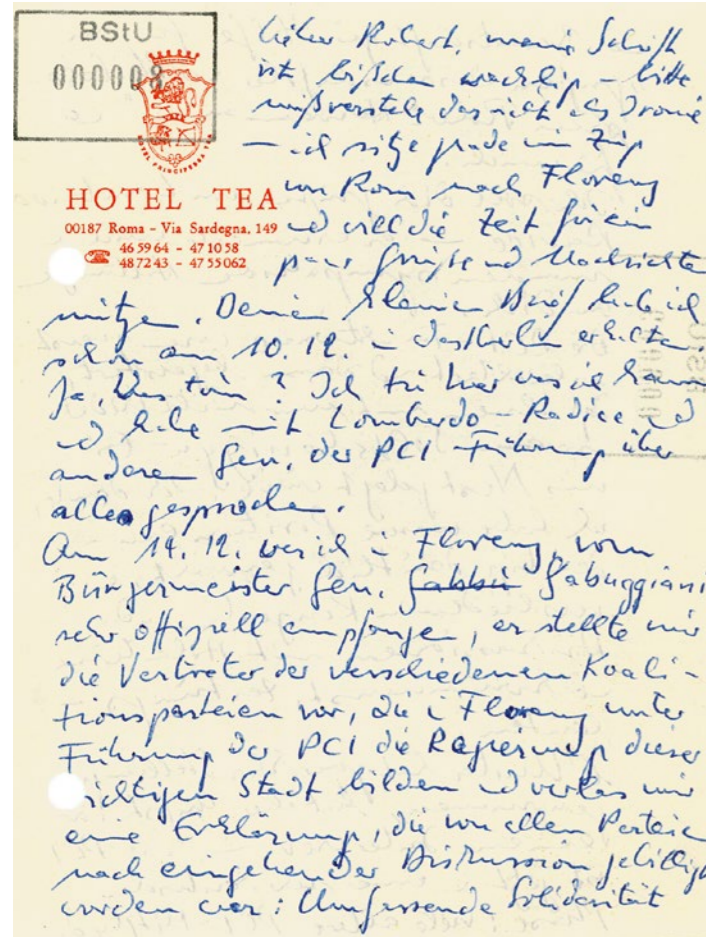 BStU
000008
HOTEL PRINCIPESSA
HOTEL TEA
00187 Roma - Via Sardegna, 149
46 59 64 - 47 10 58
48 72 43 - 47 55 062
Lieber Robert, meine Schrift
ist bißchen wacklig – bitte
mißverstehe das nicht als Ironie
– ich sitze grade im Zug
von Rom nach Florenz
und will die Zeit für ein
paar Grüße und Nachrichten
nützen. Deinen kleinen Brief habe ich
schon am 10.12. in erhalten.
Ja, Was tun? Ich tu hier was ich kann
und habe mit Lombardo-Radice und
anderen Gen. der PCI-Führung über
alles gesprochen.
Am 14.12. war ich in Florenz, vom
Bürgermeister Gen. Gabbu Gabuggiani
sehr offiziell empfangen, er stellte mir
die Vertreter der verschiedenen Koali-
tionsparteien vor, die in Florenz unter
Führung der PCI die Regierung dieser
wichtigen Stadt bilden und verlas mir
eine Erklärung, die von allen Parteien
nach eingehender Diskussion gebilligt
worden war: Umfassende Solidarität